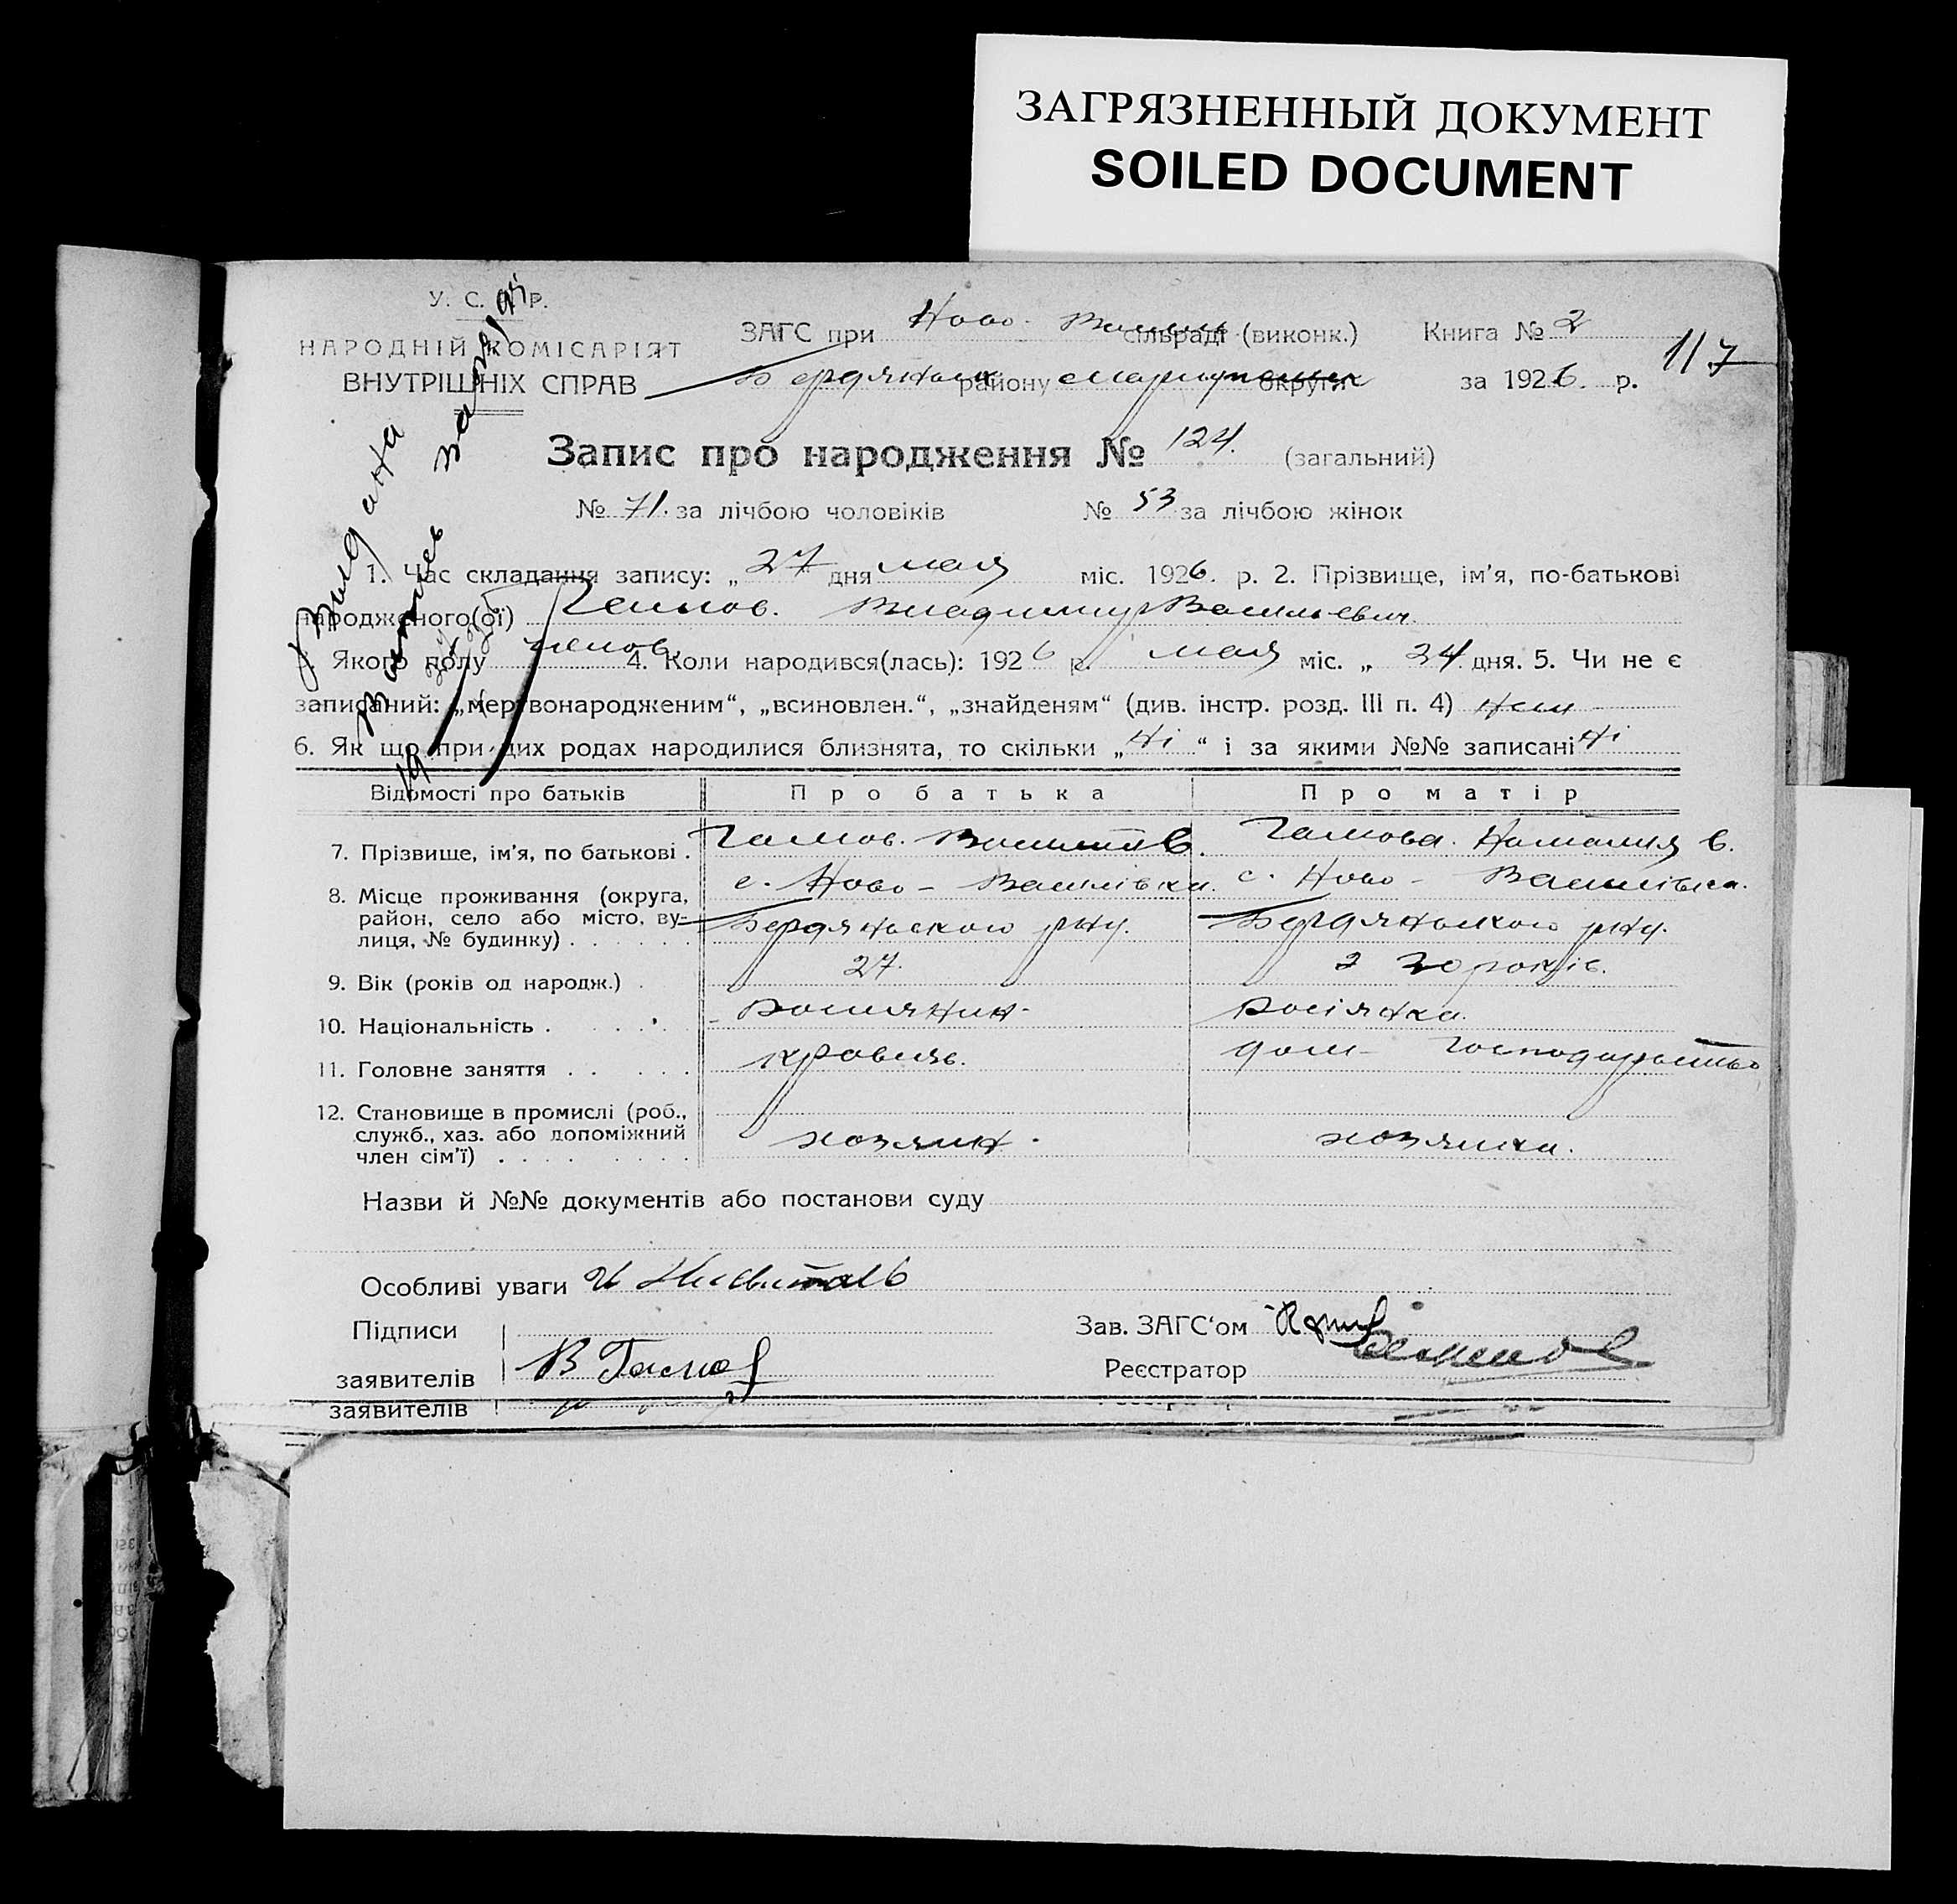 ЗАГРЯЗНЕННЫЙ ДОКУМЕНТ
SOILED DOCUMENT
У. С. Р.
НАРОДНІЙ КОМІСАРІЯТ
ВНУТРІШНІХ СПРАВ
ЗАГС при Ново- сільраді (виконк.) Книга № 2
117
району округи за 1926. р.
Запис про народження № 124. (загальний)
№ 71. за лічбою чоловіків № 53 за лічбою жінок
1. Час складання запису: „ 27 дня мая міс. 1926. р. 2. Прізвище, ім'я, по-батькові
народженого(ої) Владимир Васильевич
Якого полу 4. Коли народився(лась): 1926 р. мая міс. „ 24 дня. 5. Чи не є
записаний: „мертвонародженим“, „всиновлен.“, „знайденям“ (див. інстр. розд. III п. 4)
6. Як що при цих родах народилися близнята, то скільки „ Ні “ і за якими №№ записані Ні
Відомості про батьків Про батька Про матір
7. Прізвище, ім'я, по батькові . Гамов. Гамова. Наталия В.
8. Місце проживання (округа, с. Ново - Василівка. с. Ново - Василівка.
район, село або місто, ву- Бердянського р-ну. Бердянського р-ну.
лиця, № будинку) . . . . . .
9. Вік (років од народж.) . 27. 20 років.
10. Національність . . . . . Росиянин- Росіянка.
11. Головне заняття . . . . . кравець. дом- господарство
12. Становище в промислі (роб.,
служб., хаз. або допоміжний хозяин. хозяика.
член сім'ї) . . . . . . . .
Назви й №№ документів або постанови суду
Особливі уваги
Підписи
заявителів В Гамов
Зав. ЗАГС‘ом
Реєстратор
заявителів